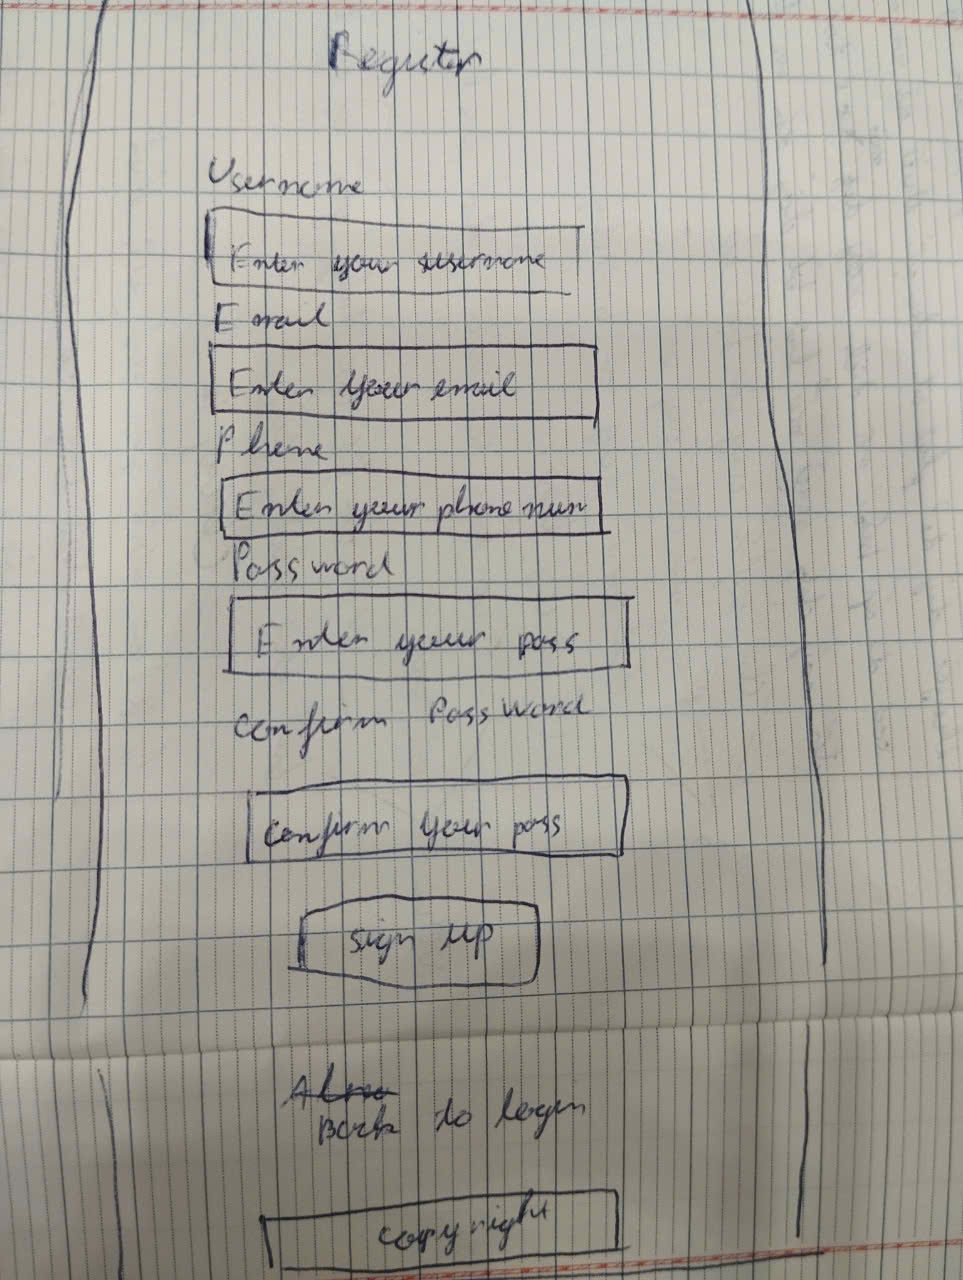 Register
Username
Enter your username
Email
Enter your email
Phone
Enter your phone num
Password
Enter your pass
Confirm Password
Confirm your pass
Sign Up
Back to login
copyright